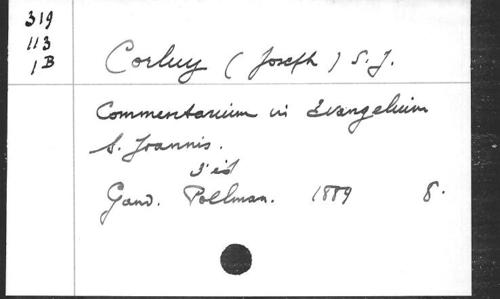 319
113
1 B
Corluy (Joseph) S. J.
Commentarium in Evangelium
S. Joannis.
3e éd
Gand. Poelman. 1889 8.